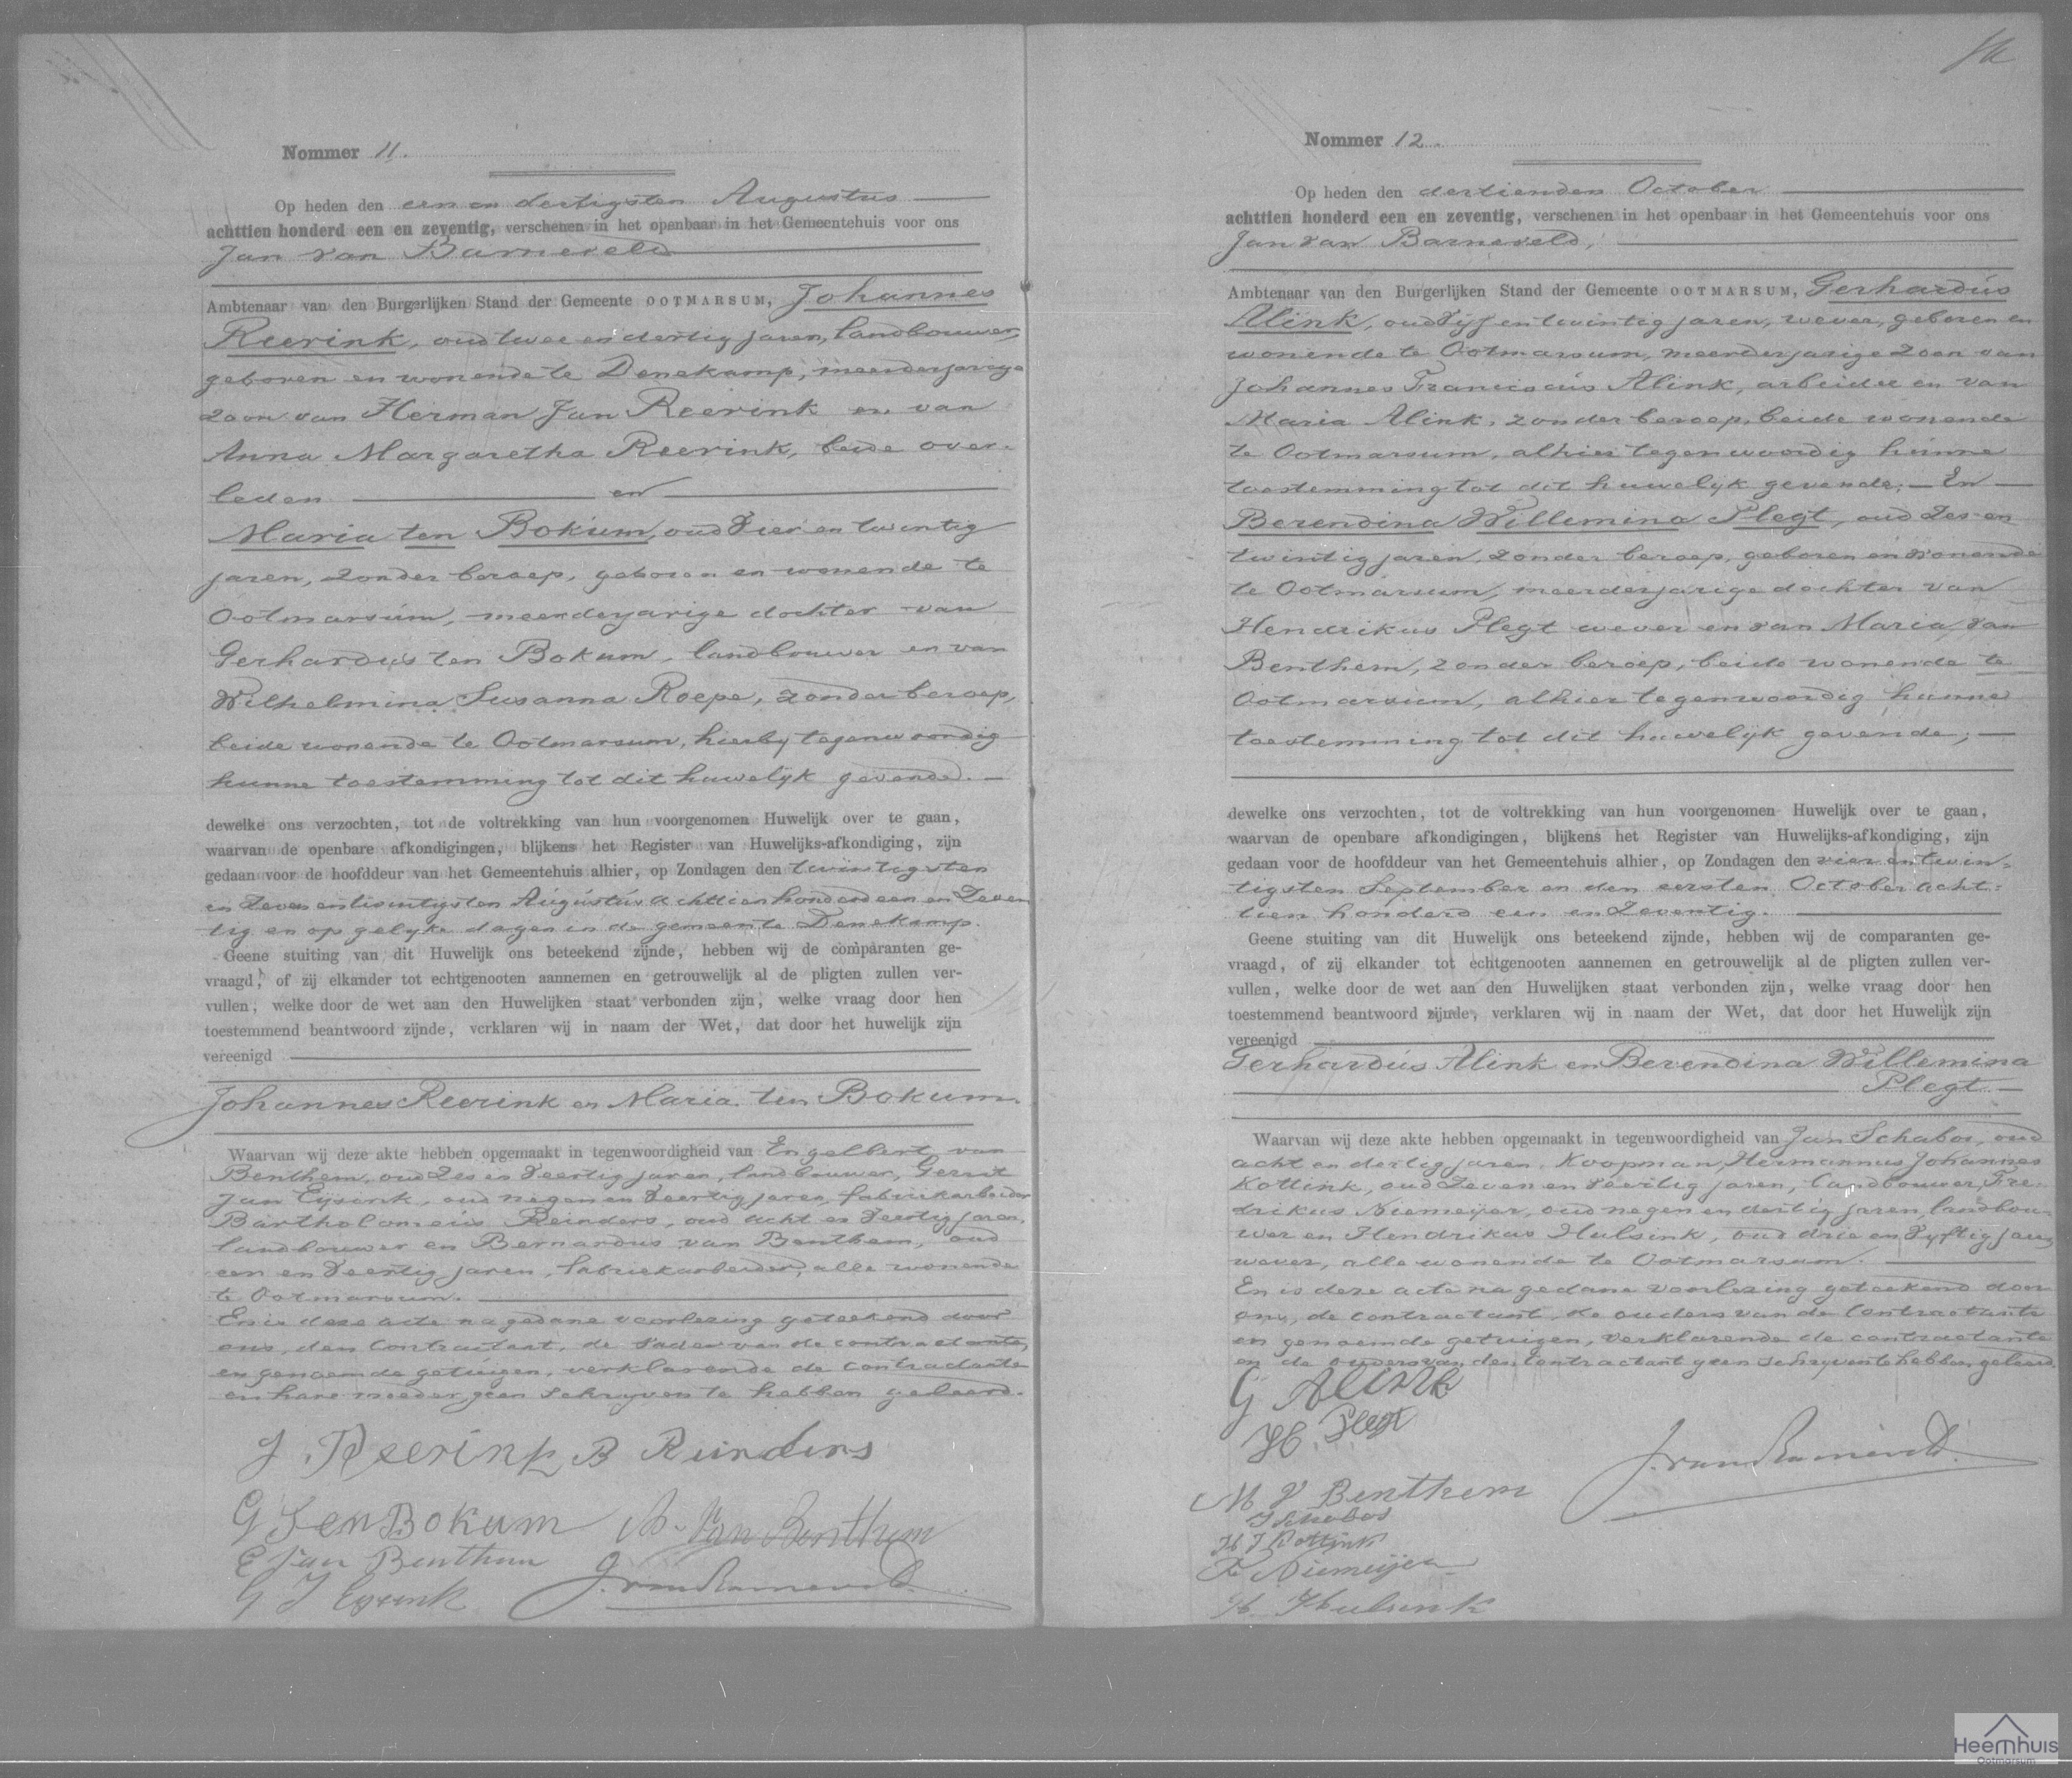 Nommer 11.
Op heden den een en dertigsten Augustus
achttien honderd een en zeventig, verschenen in het openbaar in het Gemeentehuis voor ons
Jan van Barneveld
Ambtenaar van den Burgerlijken Stand der Gemeente OOTMARSUM, Johannes
Reerink, oud twee en dertig jaren, landbouwer,
geboren en wonende te Denekamp, meerderjarige
zoon van Herman Jan Reerink en van
Anna Margaretha Reerink, beide over-
leden en
Maria ten Bokum, oud vier en twintig
jaren, zonder beroep, geboren en wonende te
Ootmarsum, meerderjarige dochter van
Gerhardus ten Bokum, landbouwer en van
Wilhelmina Susanna Roepe, zonder beroep,
beide wonende te Ootmarsum, hierbij tegenwoordig
hunne toestemming tot dit huwelijk gevende.
dewelke ons verzochten, tot de voltrekking van hun voorgenomen Huwelijk over te gaan,
waarvan de openbare afkondigingen, blijkens het Register van Huwelijks-afkondiging, zijn
gedaan voor de hoofddeur van het Gemeentehuis alhier, op Zondagen den twintigsten
en zeven en twintigsten Augustus achttien honderd een en zeven
tig en op gelijke dagen in de gemeente Denekamp.
Geene stuiting van dit Huwelijk ons beteekend zijnde, hebben wij de comparanten ge-
vraagd, of zij elkander tot echtgenooten aannemen en getrouwelijk al de pligten zullen ver-
vullen, welke door de wet aan den Huwelijken staat verbonden zijn, welke vraag door hen
toestemmend beantwoord zijnde, verklaren wij in naam der Wet, dat door het huwelijk zijn
vereenigd
Johannes Reerink en Maria ten Bokum.
Waarvan wij deze akte hebben opgemaakt in tegenwoordigheid van Engelbert van
Benthem, oud zes en veertig jaren, landbouwer, Gerrit
Jan Eysink, oud negen en veertig jaren, fabriekarbeider
Bartholomeus Reinders, oud acht en veertig jaren,
landbouwer en Bernardus van Benthem, oud
een en veertig jaren, fabriekarbeider, alle wonende
te Ootmarsum.
En is deze acte na gedane voorlezing geteekend door
ons, den Contractant, de vader van de contractante,
en genoemde getuigen, verklarende de contractante
en hare moeder geen schrijven te hebben geleerd.
J. Reerink B Reinders
G ten Bokum B. van Benthem
E van Benthem
G J Eysink J. van Barneveld
Nommer 12.
Op heden den dertienden October
achttien honderd een en zeventig, verschenen in het openbaar in het Gemeentehuis voor ons
Jan van Barneveld,
Ambtenaar van den Burgerlijken Stand der Gemeente OOTMARSUM, Gerhardus
Alink, oud vijf en twintig jaren, wever, geboren en
wonende te Ootmarsum, meerderjarige zoon van
Johannes Franciscus Alink, arbeider en van
Maria Alink, zonder beroep, beide wonende
te Ootmarsum, alhier tegenwoordig hunne
toestemming tot dit huwelijk gevende; En
Berendina Willemina Plegt, oud zes en
twintig jaren, zonder beroep, geboren en wonende
te Ootmarsum, meerderjarige dochter van
Hendrikus Plegt wever en van Maria van
Benthem, zonder beroep, beide wonende te
Ootmarsum, alhier tegenwoordig hunne
toestemming tot dit huwelijk gevende;
dewelke ons verzochten, tot de voltrekking van hun voorgenomen Huwelijk over te gaan,
waarvan de openbare afkondigingen, blijkens het Register van Huwelijks-afkondiging, zijn
gedaan voor de hoofddeur van het Gemeentehuis alhier, op Zondagen den vier en twin-
tigsten September en den eersten October acht-
tien honderd een en zeventig.
Geene stuiting van dit Huwelijk ons beteekend zijnde, hebben wij de comparanten ge-
vraagd, of zij elkander tot echtgenooten aannemen en getrouwelijk al de pligten zullen ver-
vullen, welke door de wet aan den Huwelijken staat verbonden zijn, welke vraag door hen
toestemmend beantwoord zijnde, verklaren wij in naam der Wet, dat door het Huwelijk zijn
vereenigd
Gerhardus Alink en Berendina Willemina
Plegt
Waarvan wij deze akte hebben opgemaakt in tegenwoordigheid van Jan Schabos, oud
acht en dertig jaren, Koopman, Hermannus Johannes
Kottink, oud zeven en veertig jaren, landbouwer, Fre-
drikus Niemeijer, oud negen en dertig jaren, landbou-
wer en Hendrikus Hulsink, oud drie en vijftig jaren,
wever, alle wonende te Ootmarsum.
En is deze acte na gedane voorlezing geteekend door
ons, de contractant, de ouders van de Contractante
en genoemde getuigen, verklarende de contractante
en de ouders van den Contractant geen schrijven te hebben geleerd.
G Alink
H. Plegt
J. van Barneveld
M V Benthem
J Schabos
H J Kottink
F Niemeijer
H Hulsink
Heemhuis
Ootmarsum